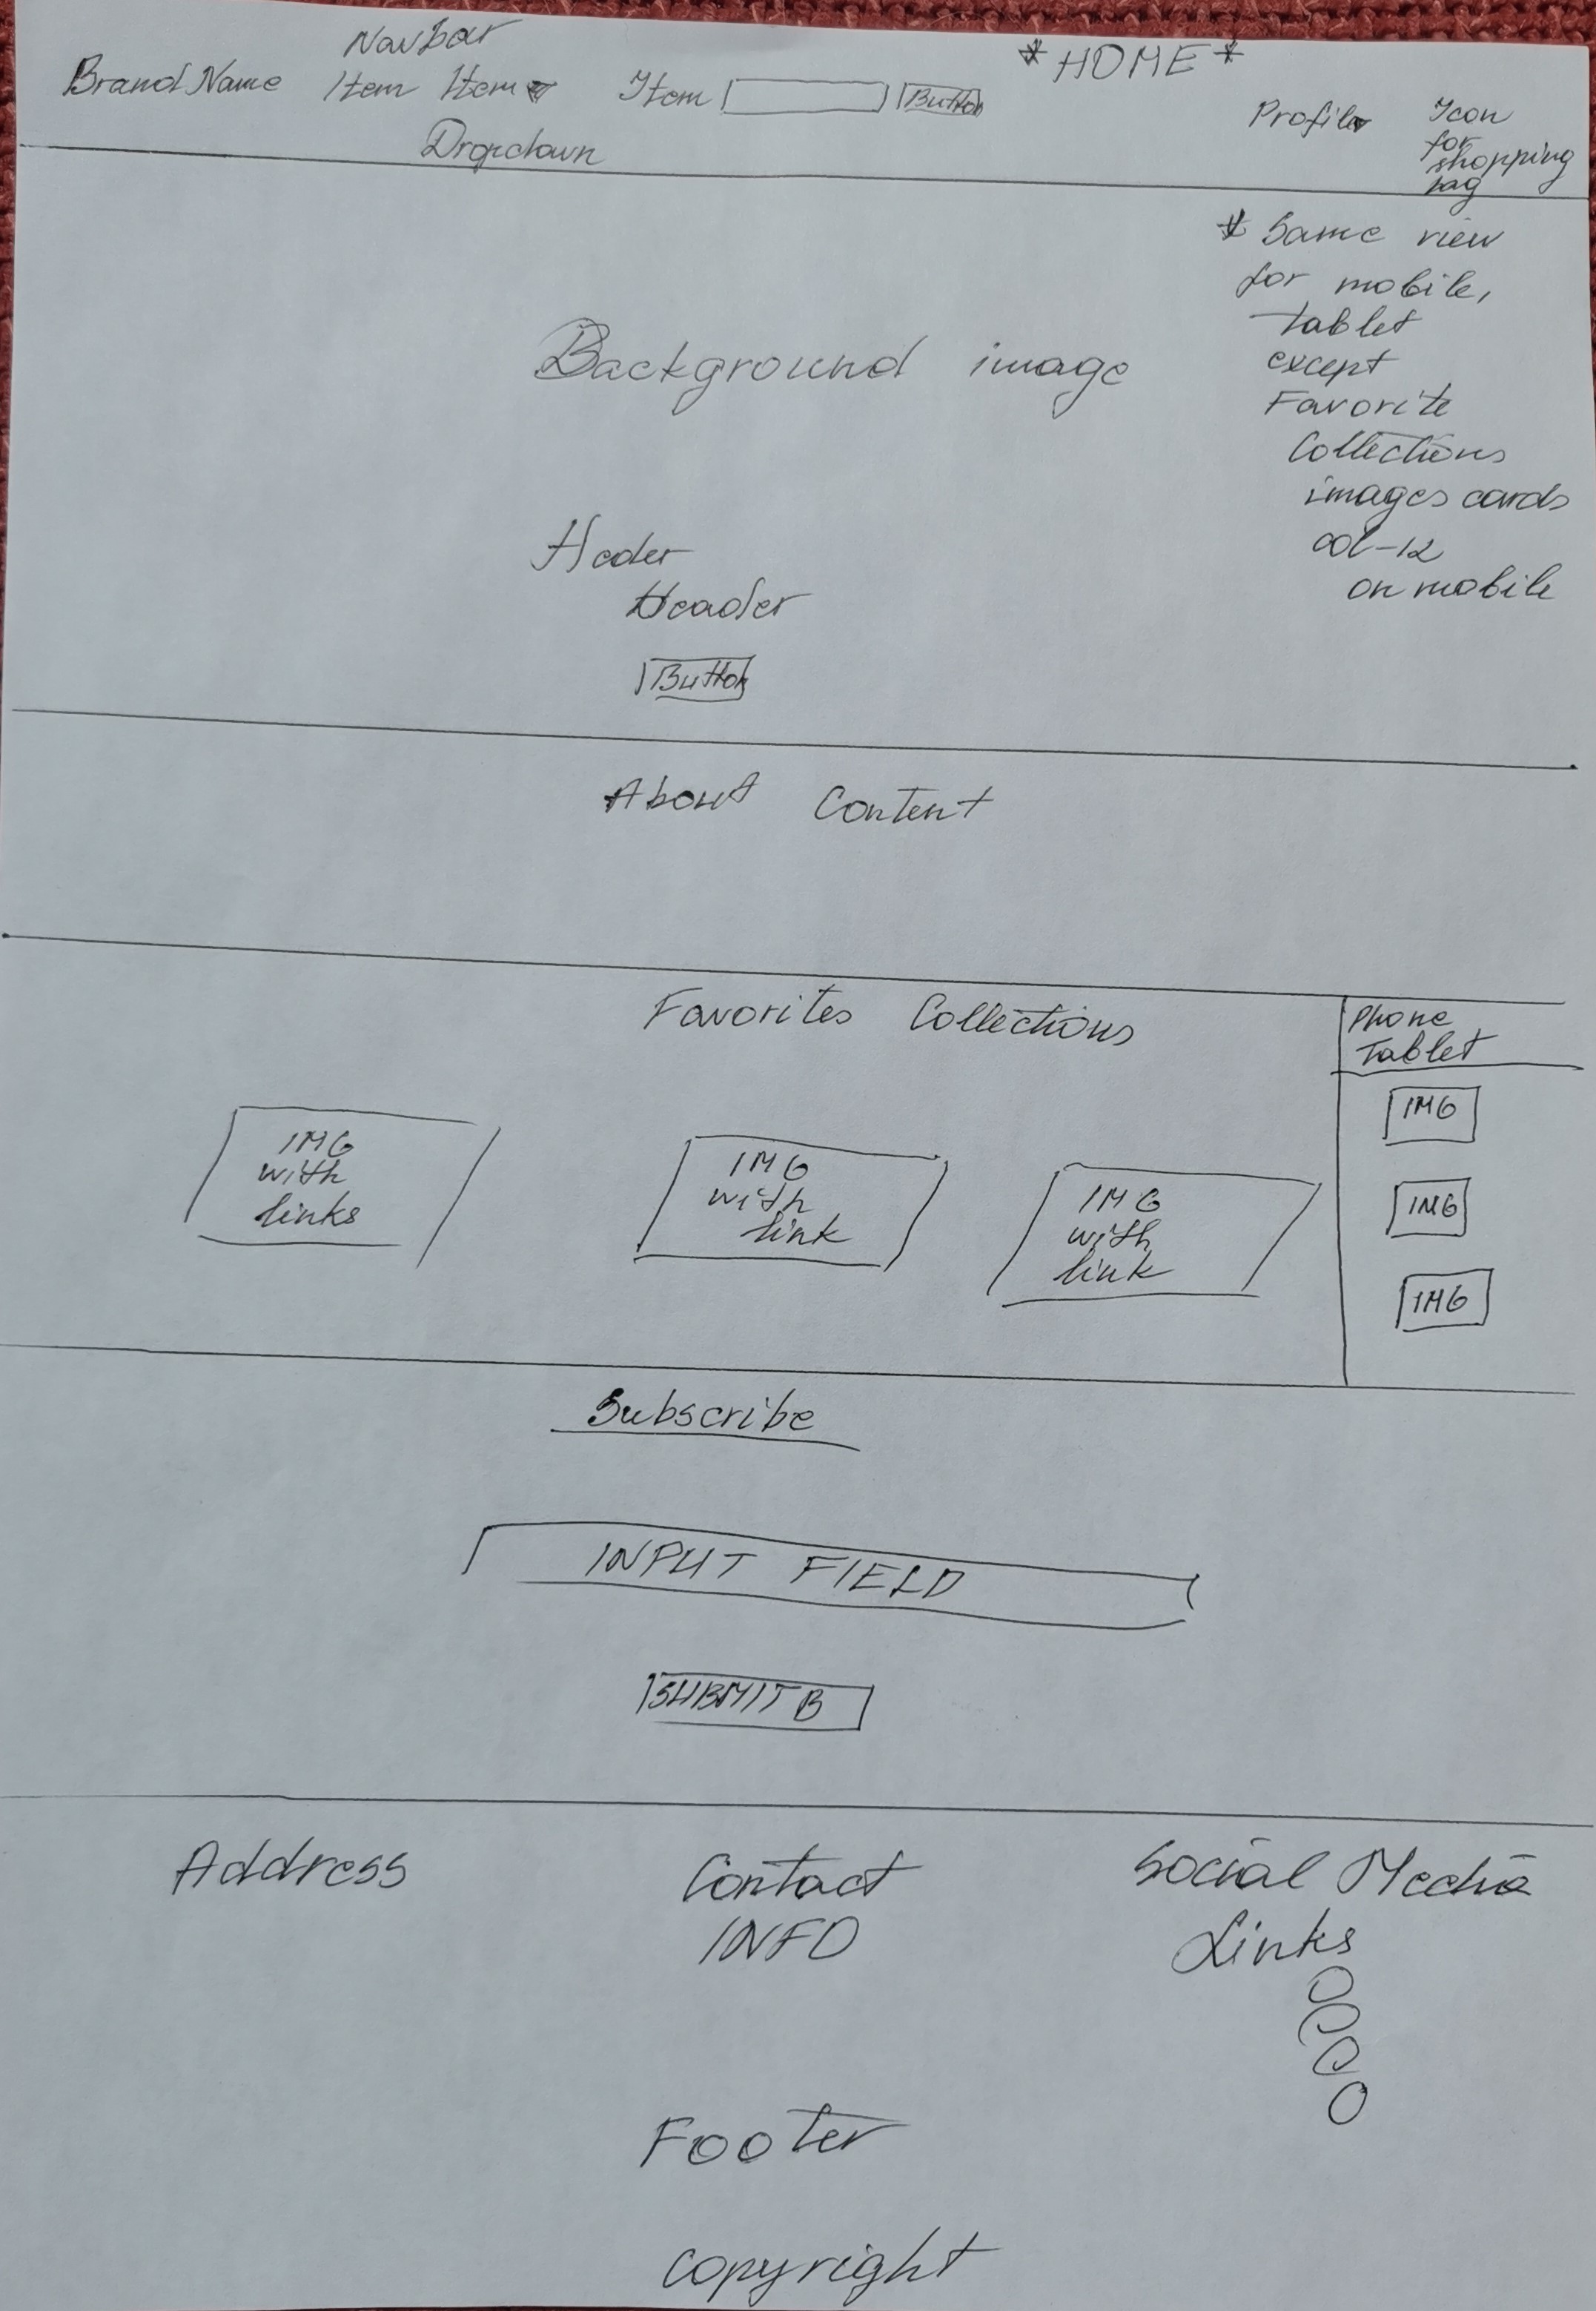 Navbar
*HOME*
Brand Name Item Item Item Button
Profile
Icon
for
shopping
bag
Dropdown
* Same view
for mobile,
tablet
except
Favorite
Collections
images cards
col-12
on mobile
Background image
Header
Header
Button
About Content
Favorites Collections
Phone
Tablet
IMG
with
links
IMG
with
link
IMG
with
link
IMG
IMG
IMG
Subscribe
INPUT FIELD
SUBMIT B
Address
Contact
INFO
Social Media
Links
Footer
Copyright